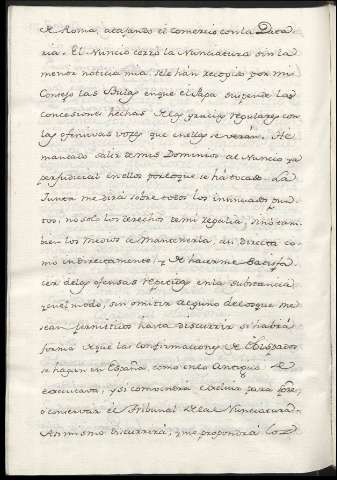 de Roma, atajando el comercio con la Data-
ria. El Nuncio cerrò la Nunciatura sin la
menor noticia mia. se le hán recogido por mi
Consejo las Bulas en que el Papa suspende las
concesiones hechas de las gracias regulares con
las ofensivas vozes que en ellas se verán. He
mandado salir de mis Dominios al Nuncio ya
perjudicial en ellos por lo que se há tocado. La
Junta me dirá sobre todos los insinuados pun-
tos, no solo los derechos de mi regalia, sinó tam-
bien los medios de mantenerla, asi directa co-
mo indirectamente; y de hacerme satisfa-
cer de las ofensas repetidas en la substancia
y en el modo, sin omitir alguno de los que me
sean permitidos hasta discurrir si habrá
forma de que las confirmaciones de Obispados
se hagan en España como en lo Antiguo se
executava, y si convendrá excluir para spre,
ó conservar el Tribunal de la Nunciatura.
Asimismo discurrirá, y me propondrá los